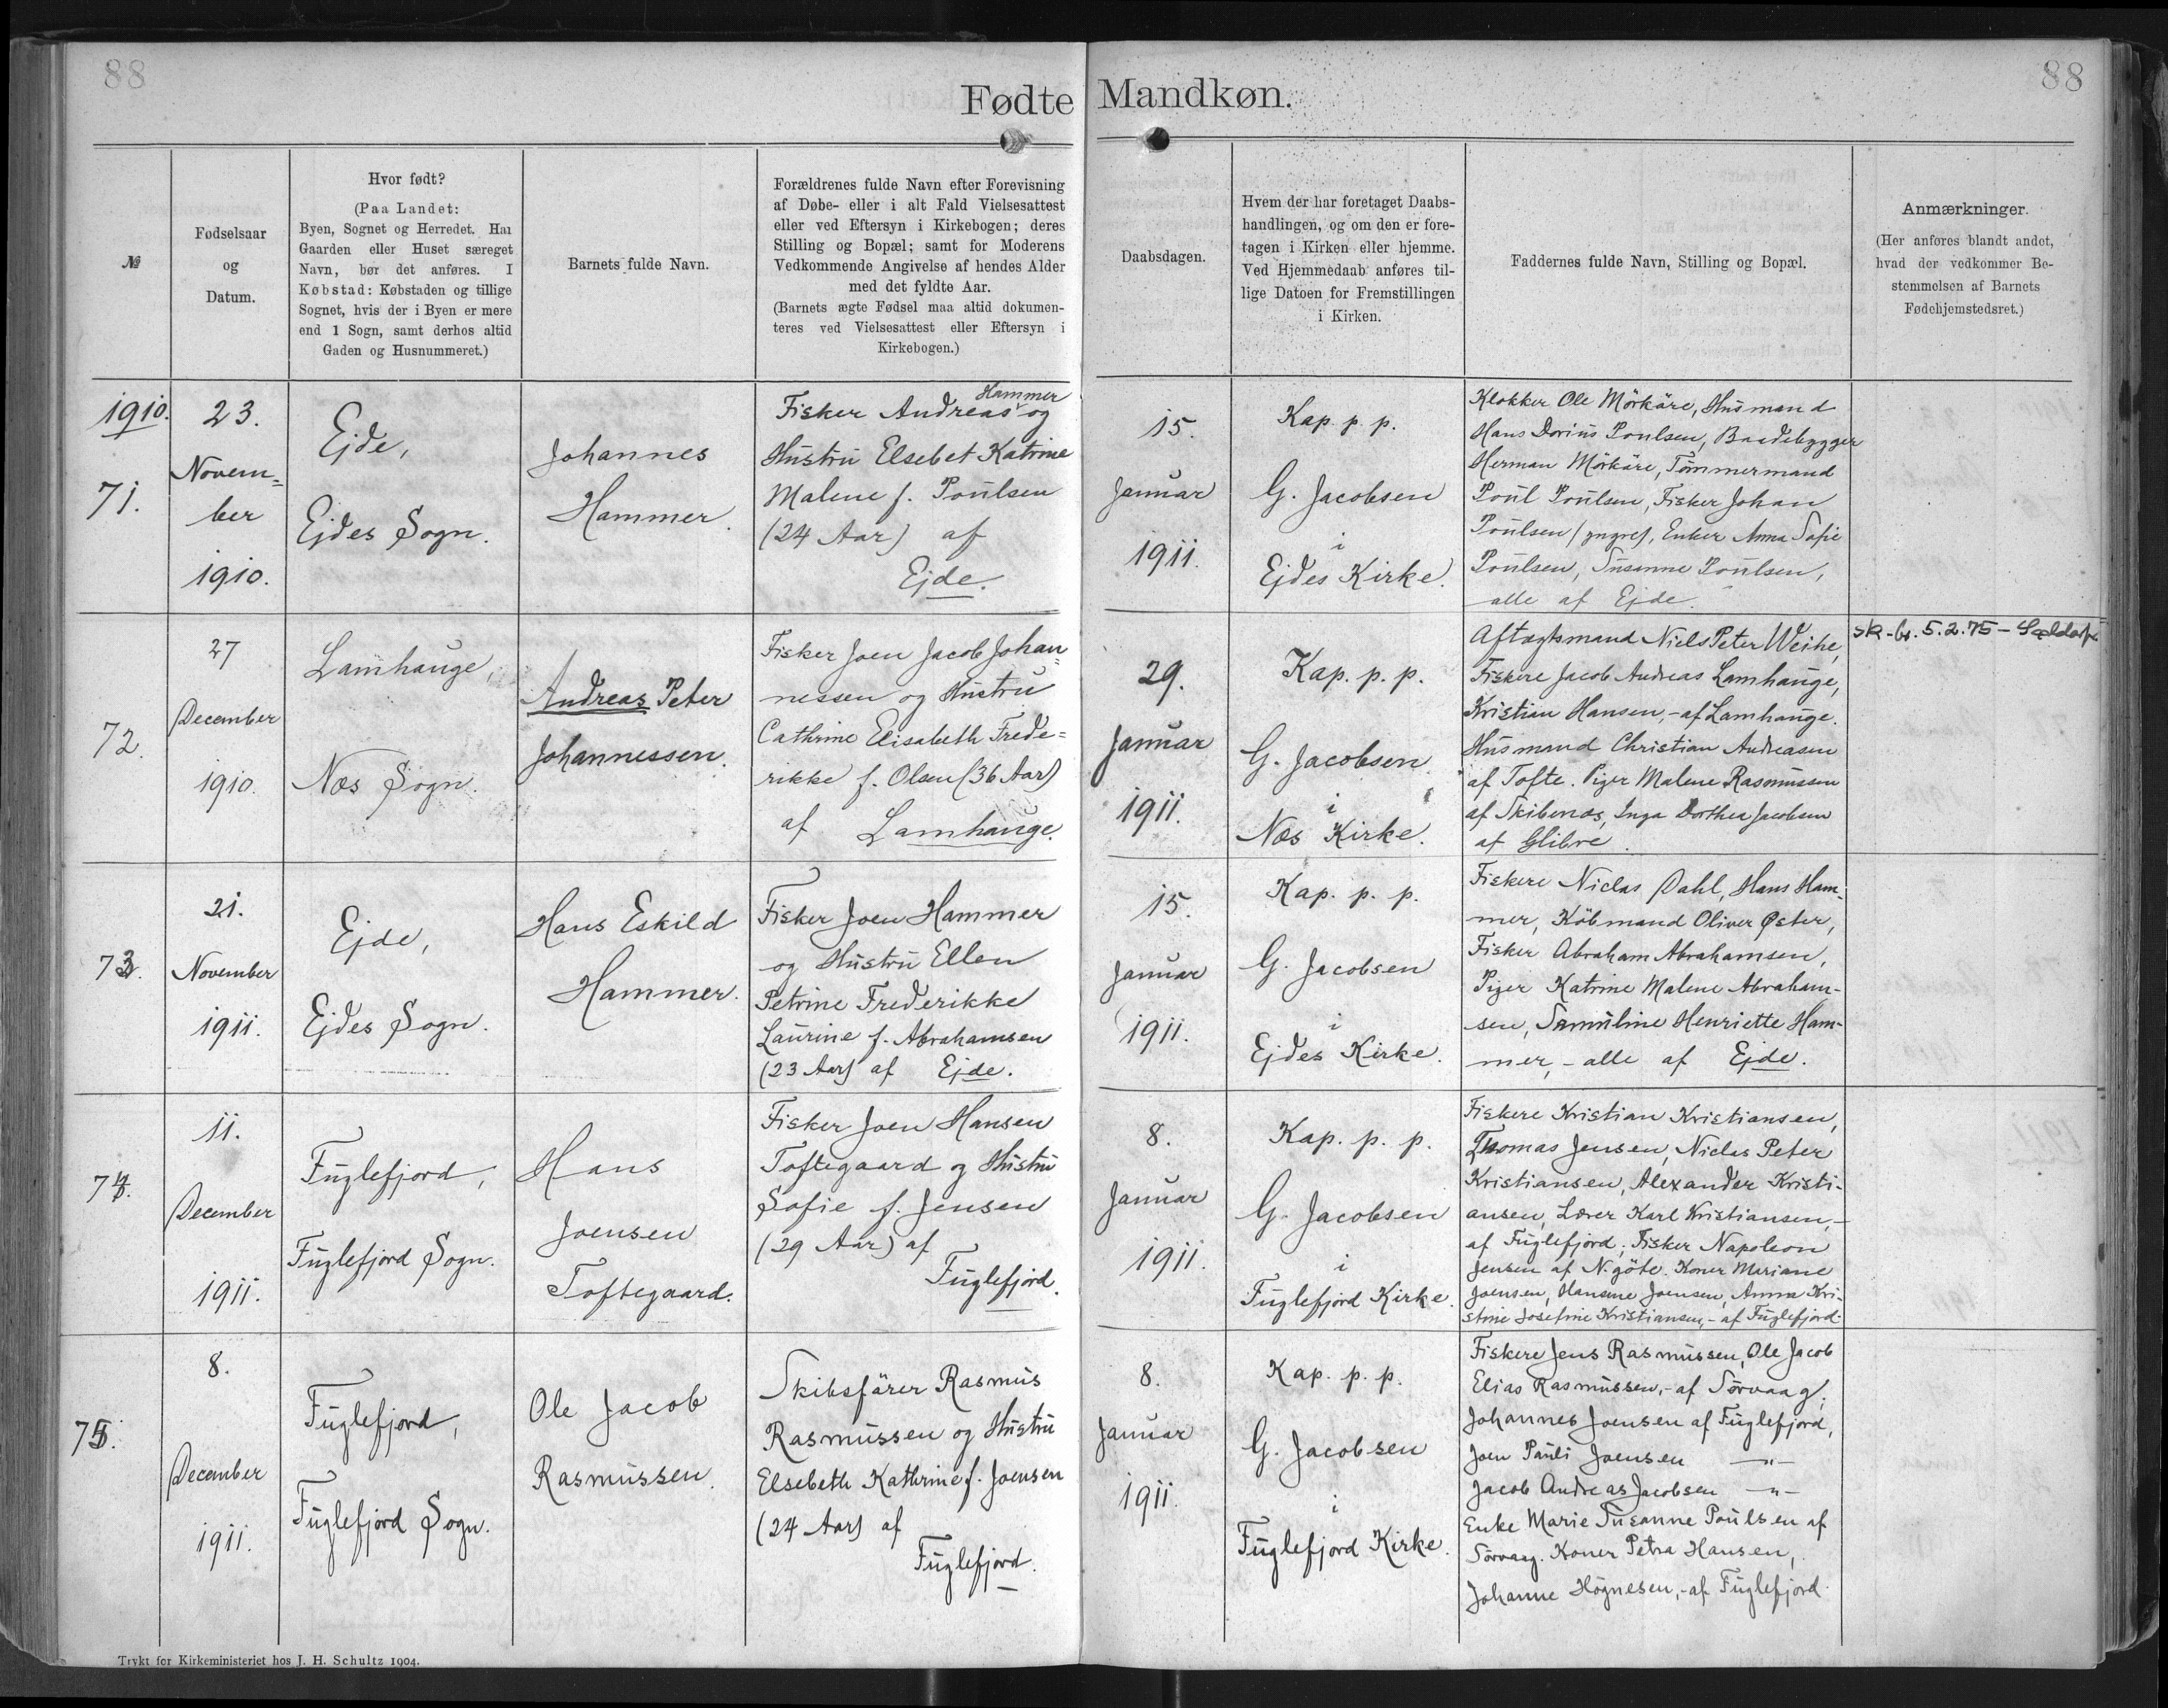 88
88
Fødte Mandkøn.
№
Fødselsaar
og
Datum.
Hvor født?
(Paa Landet:
Byen, Sognet og Herredet. Har
Gaarden eller Huset særeget
Navn, bør det anføres. I
Købstad: Købstaden og tillige
Sognet, hvis der i Byen er mere
end 1 Sogn, samt derhos altid
Gaden og Husnummeret.)
Barnets fulde Navn.
Forældrenes fulde Navn efter Forevisning
af Døbe- eller i alt Fald Vielsesattest
eller ved Eftersyn i Kirkebogen; deres
Stilling og Bopæl; samt for Moderens
Vedkommende Angivelse af hendes Alder
med det fyldte Aar.
(Barnets ægte Fødsel maa altid dokumen-
teres ved Vielsesattest eller Eftersyn i
Kirkebogen.)
Daabsdagen.
Hvem der har foretaget Daabs-
handlingen, og om den er fore-
tagen i Kirken eller hjemme.
Ved Hjemmedaab anføres til-
lige Datoen for Fremstillingen
i Kirken.
Faddernes fulde Navn, Stilling og Bopæl.
Anmærkninger.
(Her anføres blandt andet,
hvad der vedkommer Be-
stemmelsen af Barnets
Fødehjemstedsret.)
1910.
71.
23.
Novem=
ber
1910.
Ejde,
Ejdes Sogn.
Johannes
Hammer.
Hammer
Fisker Andreas og
Hustru Elsebet Katrine
Malene f. Poulsen
(24 Aar) af
Ejde.
15.
Januar
1911.
Kap. p. p.
G. Jacobsen
i
Ejdes Kirke.
Klokker Ole Mörkäre, Husmand
Hans Dorius Poulsen, Baadebygger
Herman Mörkäre, Tømmermand
Poul Poulsen, Fisker Johan
Poulsen (yngre), Enker Anna Sofie
Poulsen, Susanne Poulsen,
alle af Ejde.
72.
27
December
1910.
Lamhauge,
Næs Sogn.
Andreas Peter
Johannessen.
Fisker Joen Jacob Johan=
nessen og Hustru
Cathrine Elisabeth Frede=
rikke f. Olsen (36 Aar)
af Lamhauge.
29.
Januar
1911.
Kap. p. p.
G. Jacobsen
i
Næs Kirke.
Aftægtsmand Niels Peter Weihe,
Fiskere Jacob Andreas Lamhauge,
Kristian Hansen, - af Lamhauge.
Husmand Christian Andreasen
af Tofte. Piger Malene Rasmussen
af Skibenæs, Inga Dorthea Jacobsen
af Glibre.
sk-br. 5.2.75 -
73.
21.
November
1911.
Ejde,
Ejdes Sogn.
Hans Eskild
Hammer.
Fisker Joen Hammer
og Hustru Ellen
Petrine Frederikke
Laurine f. Abrahamsen
(23 Aar) af Ejde.
15.
Januar
1911.
Kap. p. p.
G. Jacobsen
i
Ejdes Kirke.
Fiskere Niclas Dahl, Hans Ham-
mer, Köbmand Oliver Øster,
Fisker Abraham Abrahamsen,
Piger Katrine Malene Abraham-
sen, Samuline Henriette Ham-
mer, - alle af Ejde.
74.
11.
December
1911.
Fuglefjord,
Fuglefjord Sogn.
Hans
Joensen
Toftegaard.
Fisker Joen Hansen
Toftegaard og Hustru
Sofie f. Jensen
(29 Aar) af
Fuglefjord.
8.
Januar
1911.
Kap. p. p.
G. Jacobsen
i
Fuglefjord Kirke.
Fiskere Kristian Kristiansen,
Thomas Jensen, Niclas Peter
Kristiansen, Alexander Kristi-
ansen, Lærer Karl Kristiansen, -
af Fuglefjord; Fisker Napoleon
Jensen af N. göte. Koner Mariane
Joensen, Hansine Joensen, Anna Kri-
stine Josefine Kristiansen, - af Fuglefjord.
75.
8.
December
1911.
Fuglefjord,
Fuglefjord Sogn.
Ole Jacob
Rasmussen.
Skibsfärer Rasmus
Rasmussen og Hustru
Elsebeth Kathrine f. Joensen
(24 Aar) af
Fuglefjord.
8.
Januar
1911.
Kap. p. p.
G. Jacobsen
i
Fuglefjord Kirke.
Fiskere Jens Rasmussen, Ole Jacob
Elias Rasmussen, - af Sørvaag;
Johannes Joensen af Fuglefjord,
Joen Pauli Joensen —"—
Jacob Andreas Jacobsen —"—
Enke Marie Susanne Poulsen af
Sørvaag. Koner Petra Hansen,
Johanne Högnesen, - af Fuglefjord.
Trykt for Kirkeministeriet hos J. H. Schultz 1904.